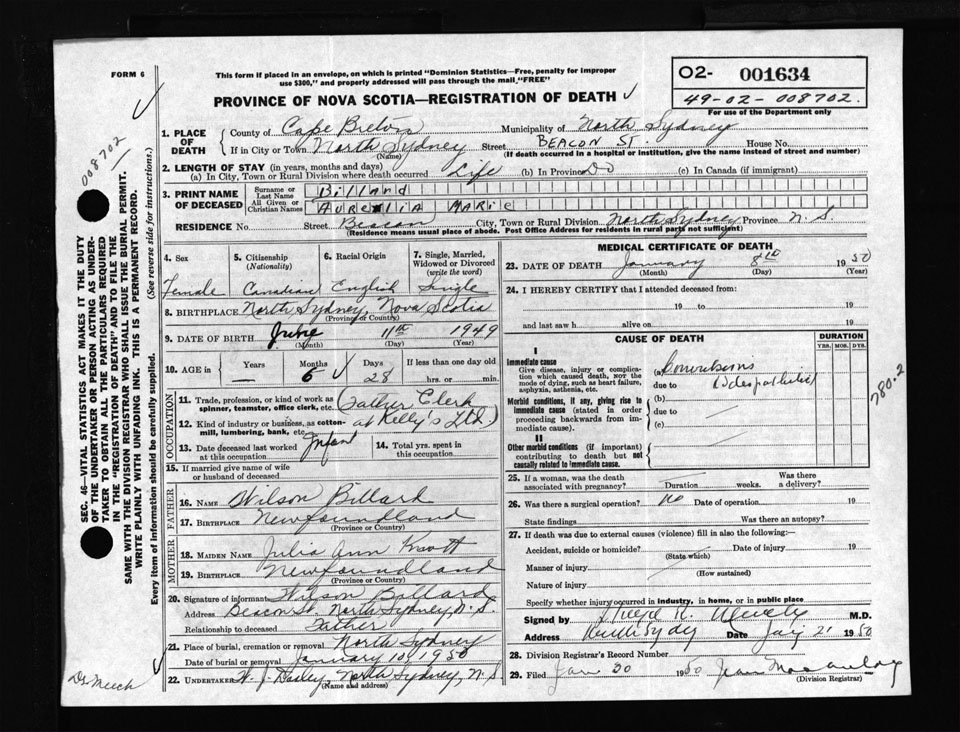 FORM 6
This form if placed in an envelope, on which is printed "Dominion Statistics—Free, penalty for improper
use $300," and properly addressed will pass through the mail "FREE"
PROVINCE OF NOVA SCOTIA—REGISTRATION OF DEATH
O2- 001634
49-02-008702.
For use of the Department only
008702
SEC. 46—VITAL STATISTICS ACT MAKES IT THE DUTY
OF THE UNDERTAKER OR PERSON ACTING AS UNDER-
TAKER TO OBTAIN ALL THE PARTICULARS REQUIRED
IN THE "REGISTRATION OF DEATH" AND TO FILE THE
SAME WITH THE DIVISION REGISTRAR WHO SHALL ISSUE THE BURIAL PERMIT.
WRITE PLAINLY WITH UNFADING INK. THIS IS A PERMANENT RECORD.
Every item of information should be carefully supplied. (See reverse side for instructions.)
1. PLACE OF DEATH
County of Cape Breton Municipality of North Sydney
If in City or Town North Sydney Street BEACON ST. House No.
(Name) (If death occurred in a hospital or institution, give the name instead of street and number)
2. LENGTH OF STAY (in years, months and days)
(a) In City, Town or Rural Division where death occurred Life (b) In Province Do (c) In Canada (if immigrant)
3. PRINT NAME OF DECEASED
Surname or Last Name Billard
All Given or Christian Names AURELIA MARIE
RESIDENCE No. Street Beacon City, Town or Rural Division North Sydney Province N.S.
(Residence means usual place of abode. Post Office Address for residents in rural parts not sufficient)
4. Sex
5. Citizenship (Nationality)
6. Racial Origin
7. Single, Married, Widowed or Divorced (write the word)
Female Canadian English Single
8. BIRTHPLACE North Sydney, Nova Scotia
(Province or Country)
9. DATE OF BIRTH June 11th 1949
(Month) (Day) (Year)
10. AGE in Years Months Days If less than one day old
— 6 28 hrs. or min.
OCCUPATION
11. Trade, profession or kind of work as spinner, teamster, office clerk, etc. (Father Clerk
12. Kind of industry or business, as cotton-mill, lumbering, bank, etc. at Kelly's Ltd)
13. Date deceased last worked at this occupation Infant
14. Total yrs. spent in this occupation
15. If married give name of wife or husband of deceased
FATHER
16. NAME Wilson Billard
17. BIRTHPLACE Newfoundland
(Province or Country)
MOTHER
18. MAIDEN NAME Julia Ann Knott
19. BIRTHPLACE Newfoundland
(Province or Country)
20. Signature of informant Wilson Billard
Address Beacon St. North Sydney, N.S.
Relationship to deceased Father
21. Place of burial, cremation or removal North Sydney
Date of burial or removal January 10, 1950
22. UNDERTAKER W. J. Dooley, North Sydney, N.S
(Name and address)
Dr Meech
MEDICAL CERTIFICATE OF DEATH
23. DATE OF DEATH January 8th 1950
(Month) (Day) (Year)
24. I HEREBY CERTIFY that I attended deceased from:
19 to 19
and last saw h alive on 19
CAUSE OF DEATH
DURATION
YRS. MOS. DYS.
I
Immediate cause
Give disease, injury or complication which caused death, not the mode of dying, such as heart failure, asphyxia, asthenia, etc.
(a) Convulsions
due to (Idiopathetic)
Morbid conditions, if any, giving rise to immediate cause (stated in order proceeding backwards from immediate cause).
(b)
due to
(c)
II
Other morbid conditions (if important) contributing to death but not causally related to immediate cause.
780·2
25. If a woman, was the death associated with pregnancy? Duration weeks. Was there a delivery?
26. Was there a surgical operation? no Date of operation 19
State findings Was there an autopsy?
27. If death was due to external causes (violence) fill in also the following:—
Accident, suicide or homicide? Date of injury 19
(State which)
Manner of injury
(How sustained)
Nature of injury
Specify whether injury occurred in industry, in home, or in public place
Signed by M.D.
Address Date Jany 21 1950
28. Division Registrar's Record Number
29. Filed Jan 20 1950 Jean
(Division Registrar)